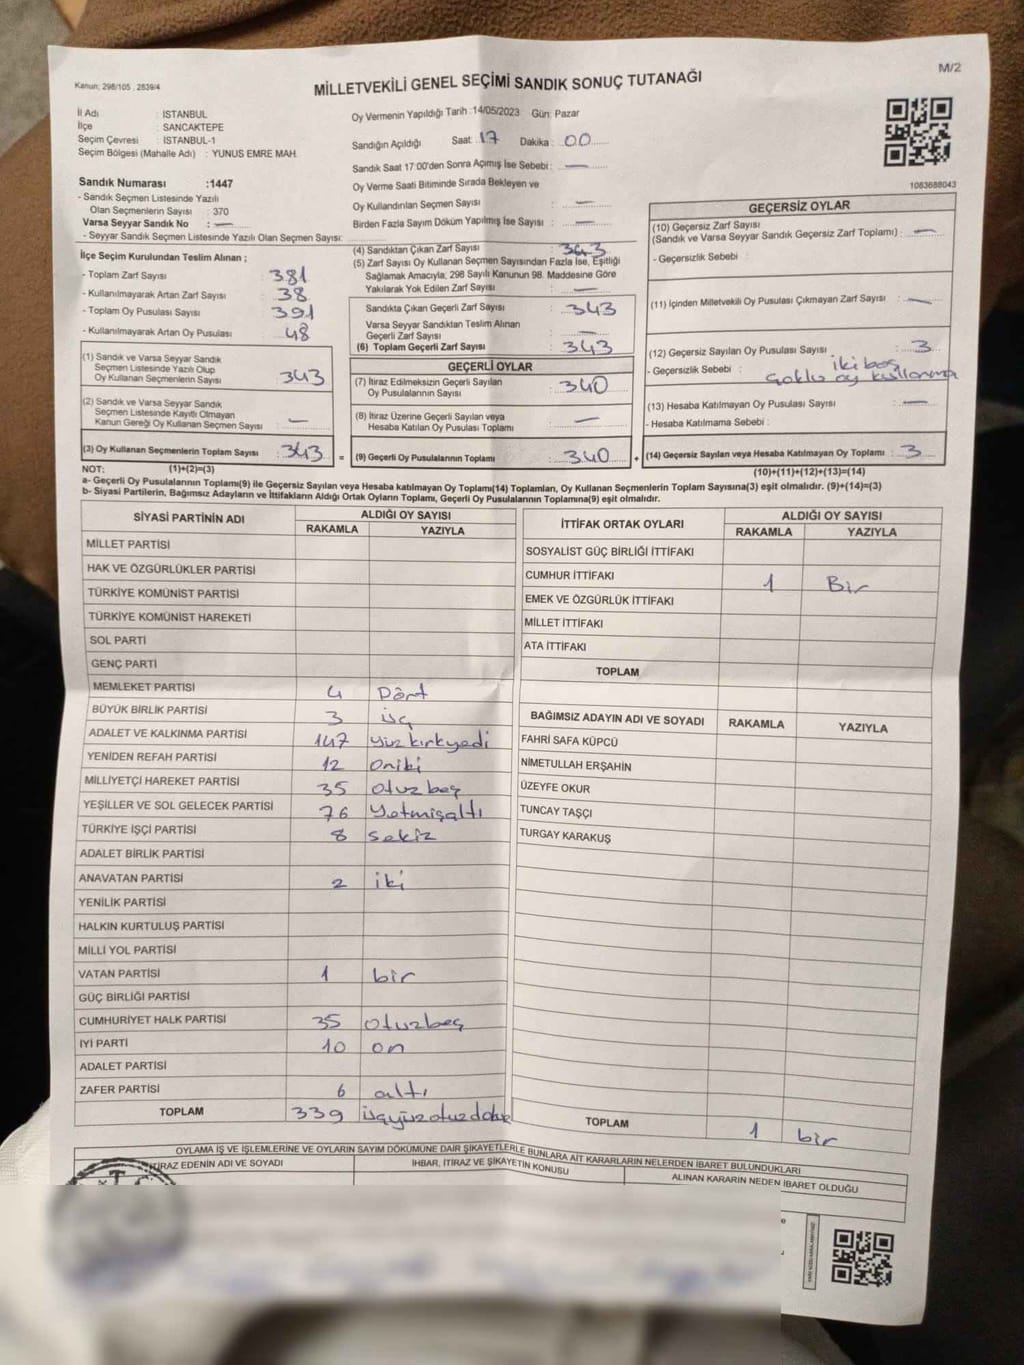 M/2
Kanun; 298/105 , 2839/4
MİLLETVEKİLİ GENEL SEÇİMİ SANDIK SONUÇ TUTANAĞI
İl Adı : İSTANBUL
İlçe : SANCAKTEPE
Seçim Çevresi : İSTANBUL-1
Seçim Bölgesi (Mahalle Adı) : YUNUS EMRE MAH.
Sandık Numarası :1447
- Sandık Seçmen Listesinde Yazılı
Olan Seçmenlerin Sayısı : 370
Varsa Seyyar Sandık No : —
- Seyyar Sandık Seçmen Listesinde Yazılı Olan Seçmen Sayısı:
Oy Vermenin Yapıldığı Tarih :14/05/2023 Gün: Pazar
Sandığın Açıldığı Saat: 17 Dakika : 00
Sandık Saat 17:00'den Sonra Açımış İse Sebebi: —
Oy Verme Saati Bitiminde Sırada Bekleyen ve
Oy Kullandırılan Seçmen Sayısı : —
Birden Fazla Sayım Döküm Yapılmış İse Sayısı : —
1083688043
İlçe Seçim Kurulundan Teslim Alınan ;
- Toplam Zarf Sayısı : 381
- Kullanılmayarak Artan Zarf Sayısı : 38
- Toplam Oy Pusulası Sayısı : 391
- Kullanılmayarak Artan Oy Pusulası : 48
(1) Sandık ve Varsa Seyyar Sandık
Seçmen Listesinde Yazılı Olup
Oy Kullanan Seçmenlerin Sayısı : 343
(2) Sandık ve Varsa Seyyar Sandık
Seçmen Listesinde Kayıtlı Olmayan
Kanun Gereği Oy Kullanan Seçmen Sayısı : —
(3) Oy Kullanan Seçmenlerin Toplam Sayısı : 343 =
(4) Sandıktan Çıkan Zarf Sayısı : 343
(5) Zarf Sayısı Oy Kullanan Seçmen Sayısından Fazla İse, Eşitliği
Sağlamak Amacıyla; 298 Sayılı Kanunun 98. Maddesine Göre
Yakılarak Yok Edilen Zarf Sayısı : —
Sandıkta Çıkan Geçerli Zarf Sayısı : 343
Varsa Seyyar Sandıktan Teslim Alınan
Geçerli Zarf Sayısı : —
(6) Toplam Geçerli Zarf Sayısı : 343
GEÇERLİ OYLAR
(7) İtiraz Edilmeksizin Geçerli Sayılan
Oy Pusulalarının Sayısı : 340
(8) İtiraz Üzerine Geçerli Sayılan veya
Hesaba Katılan Oy Pusulası Toplamı : —
(9) Geçerli Oy Pusulalarının Toplamı : 340 +
GEÇERSİZ OYLAR
(10) Geçersiz Zarf Sayısı
(Sandık ve Varsa Seyyar Sandık Geçersiz Zarf Toplamı) : —
- Geçersizlik Sebebi :
(11) İçinden Milletvekili Oy Pusulası Çıkmayan Zarf Sayısı : —
(12) Geçersiz Sayılan Oy Pusulası Sayısı : 3
- Geçersizlik Sebebi : iki boş
çoklu oy kullanma
(13) Hesaba Katılmayan Oy Pusulası Sayısı : —
- Hesaba Katılmama Sebebi :
(14) Geçersiz Sayılan veya Hesaba Katılmayan Oy Toplamı : 3
NOT: (1)+(2)=(3)
(10)+(11)+(12)+(13)=(14)
a- Geçerli Oy Pusulalarının Toplamı(9) ile Geçersiz Sayılan veya Hesaba katılmayan Oy Toplamı(14) Toplamları, Oy Kullanan Seçmenlerin Toplam Sayısına(3) eşit olmalıdır. (9)+(14)=(3)
b- Siyasi Partilerin, Bağımsız Adayların ve İttifakların Aldığı Ortak Oyların Toplamı, Geçerli Oy Pusulalarının Toplamına(9) eşit olmalıdır.
SİYASİ PARTİNİN ADI ALDIĞI OY SAYISI
RAKAMLA YAZIYLA
MİLLET PARTİSİ
HAK VE ÖZGÜRLÜKLER PARTİSİ
TÜRKİYE KOMÜNİST PARTİSİ
TÜRKİYE KOMÜNİST HAREKETİ
SOL PARTİ
GENÇ PARTİ
MEMLEKET PARTİSİ 4 Dört
BÜYÜK BİRLİK PARTİSİ 3 üç
ADALET VE KALKINMA PARTİSİ 147 yüzkırkyedi
YENİDEN REFAH PARTİSİ 12 oniki
MİLLİYETÇİ HAREKET PARTİSİ 35 otuzbeş
YEŞİLLER VE SOL GELECEK PARTİSİ 76 yetmişaltı
TÜRKİYE İŞÇİ PARTİSİ 8 sekiz
ADALET BİRLİK PARTİSİ
ANAVATAN PARTİSİ 2 iki
YENİLİK PARTİSİ
HALKIN KURTULUŞ PARTİSİ
MİLLİ YOL PARTİSİ
VATAN PARTİSİ 1 bir
GÜÇ BİRLİĞİ PARTİSİ
CUMHURİYET HALK PARTİSİ 35 otuzbeş
İYİ PARTİ 10 on
ADALET PARTİSİ
ZAFER PARTİSİ 6 altı
TOPLAM 339
İTTİFAK ORTAK OYLARI ALDIĞI OY SAYISI
RAKAMLA YAZIYLA
SOSYALİST GÜÇ BİRLİĞİ İTTİFAKI
CUMHUR İTTİFAKI 1 Bir
EMEK VE ÖZGÜRLÜK İTTİFAKI
MİLLET İTTİFAKI
ATA İTTİFAKI
TOPLAM
BAĞIMSIZ ADAYIN ADI VE SOYADI RAKAMLA YAZIYLA
FAHRİ SAFA KÜPCÜ
NİMETULLAH ERŞAHİN
ÜZEYFE OKUR
TUNCAY TAŞÇI
TURGAY KARAKUŞ
TOPLAM 1 bir
OYLAMA İŞ VE İŞLEMLERİNE VE OYLARIN SAYIM DÖKÜMÜNE DAİR ŞİKAYETLERLE BUNLARA AİT KARARLARIN NELERDEN İBARET BULUNDUKLARI
İTİRAZ EDENİN ADI VE SOYADI İHBAR, İTİRAZ VE ŞİKAYETİN KONUSU ALINAN KARARIN NEDEN İBARET OLDUĞU